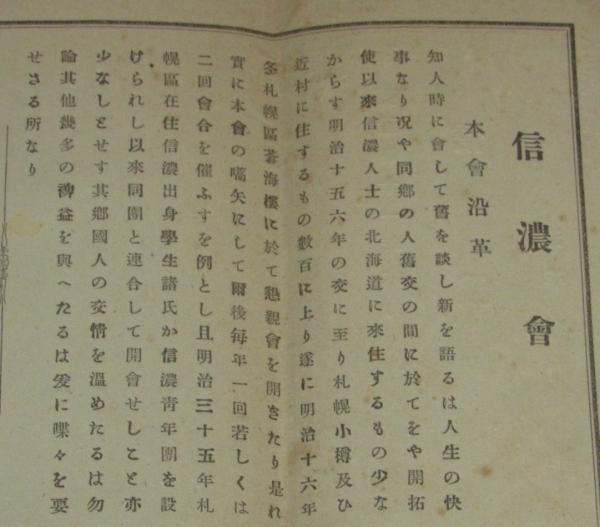 信濃會
本會沿革
知人時に會して舊を談し新を語るは人生の快
事なり况や同郷の人舊交の間に於てをや開拓
使以來信濃人士の北海道に來住するもの少な
からす明治十五六年の交に至り札幌小樽及ひ
近村に住するもの數百に上り遂に明治十六年
冬札幌區蒼海樓に於て懇親會を開きたり是れ
實に本會の嚆矢にして爾後毎年一回若しくは
二回會合を催ふすを例とし且明治三十五年札
幌區在住信濃出身學生諸氏か信濃青年團を設
けられし以來同團と連合して開會せしこと亦
少なしとせす其郷國人の交情を溫めたるは勿
論其他幾多の裨益を與へたるは爰に喋々を要
せさる所なり